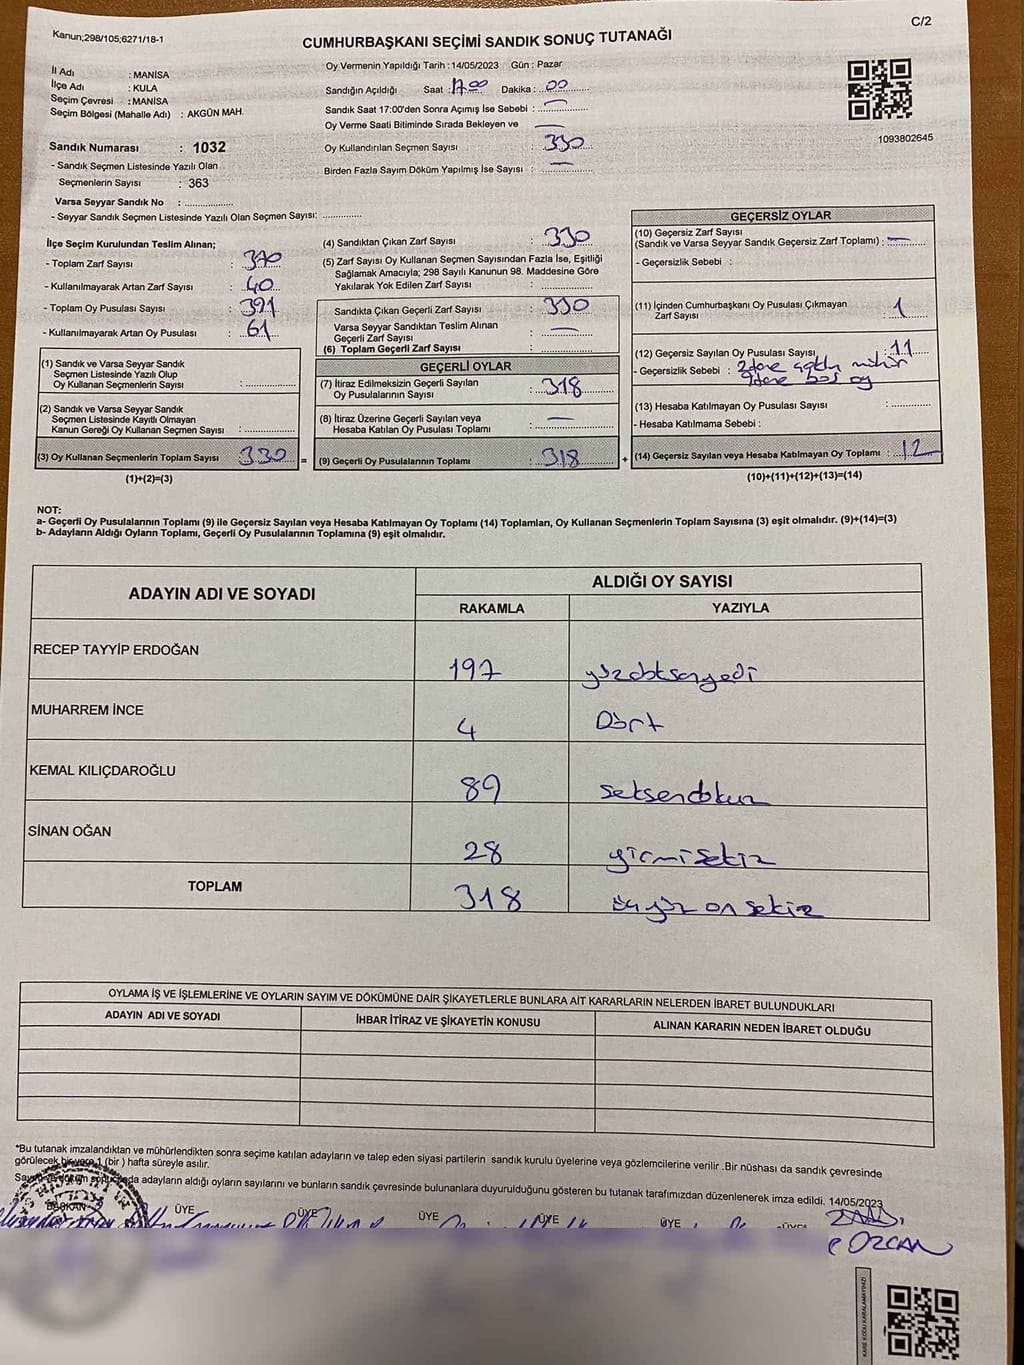 Kanun;298/105;6271/18-1
C/2
CUMHURBAŞKANI SEÇİMİ SANDIK SONUÇ TUTANAĞI
İl Adı : MANİSA
İlçe Adı : KULA
Seçim Çevresi : MANİSA
Seçim Bölgesi (Mahalle Adı) : AKGÜN MAH.
Oy Vermenin Yapıldığı Tarih : 14/05/2023 Gün : Pazar
Sandığın Açıldığı Saat : 17.00 Dakika : 00
Sandık Saat 17:00'den Sonra Açımış İse Sebebi : —
Oy Verme Saati Bitiminde Sırada Bekleyen ve —
Oy Kullandırılan Seçmen Sayısı 330
Birden Fazla Sayım Döküm Yapılmış İse Sayısı : —
1093802645
Sandık Numarası : 1032
- Sandık Seçmen Listesinde Yazılı Olan
Seçmenlerin Sayısı : 363
Varsa Seyyar Sandık No :
- Seyyar Sandık Seçmen Listesinde Yazılı Olan Seçmen Sayısı:
İlçe Seçim Kurulundan Teslim Alınan;
- Toplam Zarf Sayısı : 370
- Kullanılmayarak Artan Zarf Sayısı : 40
- Toplam Oy Pusulası Sayısı : 391
- Kullanılmayarak Artan Oy Pusulası : 61
(1) Sandık ve Varsa Seyyar Sandık
Seçmen Listesinde Yazılı Olup
Oy Kullanan Seçmenlerin Sayısı :
(2) Sandık ve Varsa Seyyar Sandık
Seçmen Listesinde Kayıtlı Olmayan
Kanun Gereği Oy Kullanan Seçmen Sayısı :
(3) Oy Kullanan Seçmenlerin Toplam Sayısı : 330 =
(1)+(2)=(3)
(4) Sandıktan Çıkan Zarf Sayısı : 330
(5) Zarf Sayısı Oy Kullanan Seçmen Sayısından Fazla İse, Eşitliği
Sağlamak Amacıyla; 298 Sayılı Kanunun 98. Maddesine Göre
Yakılarak Yok Edilen Zarf Sayısı :
Sandıkta Çıkan Geçerli Zarf Sayısı : 330
Varsa Seyyar Sandıktan Teslim Alınan
Geçerli Zarf Sayısı : —
(6) Toplam Geçerli Zarf Sayısı :
GEÇERLİ OYLAR
(7) İtiraz Edilmeksizin Geçerli Sayılan
Oy Pusulasının Sayısı : 318
(8) İtiraz Üzerine Geçerli Sayılan veya
Hesaba Katılan Oy Pusulası Toplamı : —
(9) Geçerli Oy Pusulalarının Toplamı : 318 +
GEÇERSİZ OYLAR
(10) Geçersiz Zarf Sayısı
(Sandık ve Varsa Seyyar Sandık Geçersiz Zarf Toplamı) : —
- Geçersizlik Sebebi :
(11) İçinden Cumhurbaşkanı Oy Pusulası Çıkmayan
Zarf Sayısı : 1
(12) Geçersiz Sayılan Oy Pusulası Sayısı : 11
- Geçersizlik Sebebi : 2 tane mühür
9 tane boş oy
(13) Hesaba Katılmayan Oy Pusulası Sayısı :
- Hesaba Katılmama Sebebi :
(14) Geçersiz Sayılan veya Hesaba Katılmayan Oy Toplamı : 12
(10)+(11)+(12)+(13)=(14)
NOT:
a- Geçerli Oy Pusulalarının Toplamı (9) ile Geçersiz Sayılan veya Hesaba Katılmayan Oy Toplamı (14) Toplamları, Oy Kullanan Seçmenlerin Toplam Sayısına (3) eşit olmalıdır. (9)+(14)=(3)
b- Adayların Aldığı Oyların Toplamı, Geçerli Oy Pusulalarının Toplamına (9) eşit olmalıdır.
ADAYIN ADI VE SOYADI
ALDIĞI OY SAYISI
RAKAMLA YAZIYLA
RECEP TAYYİP ERDOĞAN 197 yüzdoksanyedi
MUHARREM İNCE 4 Dört
KEMAL KILIÇDAROĞLU 89 seksendokuz
SİNAN OĞAN 28 yirmisekiz
TOPLAM 318 üçyüz on sekiz
OYLAMA İŞ VE İŞLEMLERİNE VE OYLARIN SAYIM VE DÖKÜMÜNE DAİR ŞİKAYETLERLE BUNLARA AİT KARARLARIN NELERDEN İBARET BULUNDUKLARI
ADAYIN ADI VE SOYADI İHBAR İTİRAZ VE ŞİKAYETİN KONUSU ALINAN KARARIN NEDEN İBARET OLDUĞU
*Bu tutanak imzalandıktan ve mühürlendikten sonra seçime katılan adayların ve talep eden siyasi partilerin sandık kurulu üyelerine veya gözlemcilerine verilir .Bir nüshası da sandık çevresinde
görülecek bir yere 1 (bir ) hafta süreyle asılır.
adayların aldığı oyların sayılarını ve bunların sandık çevresinde bulunanlara duyurulduğunu gösteren bu tutanak tarafımızdan düzenlenerek imza edildi. 14/05/2023
BAŞKAN ÜYE ÜYE ÜYE ÜYE ÜYE ÜYE
ÖZCAN
KARE KODU KARALAMAYINIZ!